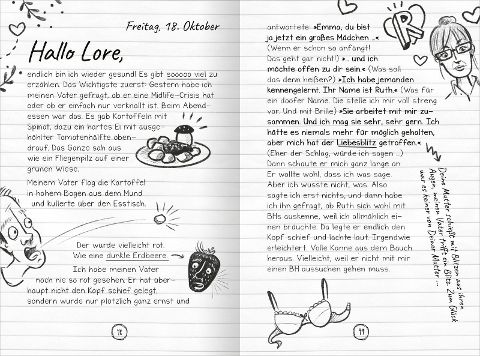 Freitag, 18. Oktober
Hallo Lore,
endlich bin ich wieder gesund! Es gibt sooooo viel zu
erzählen. Das Wichtigste zuerst: Gestern habe ich
meinen Vater gefragt, ob er eine Midlife-Crisis hat
oder ob er einfach nur verknallt ist. Beim Abend-
essen war das. Es gab Kartoffeln mit
Spinat, dazu ein hartes Ei mit ausge-
höhlter Tomatenhälfte oben-
drauf. Das Ganze sah aus
wie ein Fliegenpilz auf einer
grünen Wiese.
Meinem Vater flog die Kartoffel
in hohem Bogen aus dem Mund
und kullerte über den Esstisch.
Der wurde vielleicht rot.
Wie eine dunkle Erdbeere.
Ich habe meinen Vater
noch nie so rot gesehen. Er hat aber
haupt nicht den Kopf schief gelegt,
sondern wurde nur plötzlich ganz ernst und
antwortete: »Emma, du bist
ja jetzt ein großes Mädchen ...«
(Wenn er schon so anfängt!
Das geht gar nicht!) »... und ich
möchte offen zu dir sein.« (Was soll
das denn heißen?) »Ich habe jemanden
kennengelernt. Ihr Name ist Ruth.« (Was für
ein doofer Name. Die stelle ich mir voll streng
vor. Und mit Brille) »Sie arbeitet mit mir zu-
sammen. Und ich mag sie sehr, sehr gern. Ich
hätte es niemals mehr für möglich gehalten,
aber mich hat der Liebesblitz getroffen.«
(Eher der Schlag, würde ich sagen ...)
Dann schaute er mich ganz lange an.
Er wollte wohl, dass ich was sage.
Aber ich wusste nicht, was. Also
sagte ich erst nichts, und dann habe
ich ihn gefragt, ob Ruth sich wohl mit
BHs auskenne, weil ich allmählich ei-
nen bräuchte. Da legte er endlich den
Kopf schief und lachte laut. Irgendwie
erleichtert. Volle Kanne aus dem Bauch
heraus. Vielleicht, weil er nicht mit mir
einen BH aussuchen gehen muss.
R
Deine Mutter schießt mit Blitzen aus ihren
Augen, meinen Vater trifft ein Blitz. Zum Glück
war es keiner von deiner Mutter ...